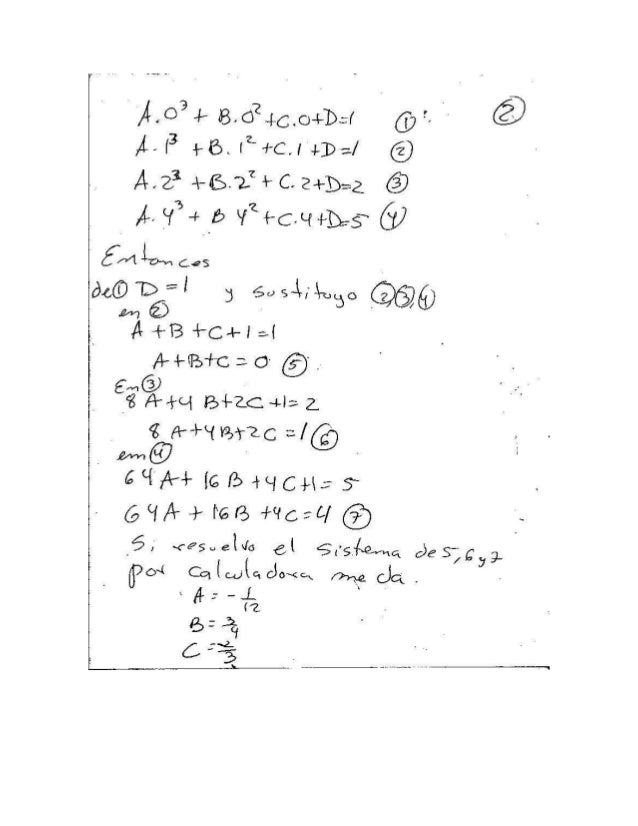 A.0³ + B.0² + C.0 + D = 1 ① ②
A.1³ + B.1² + C.1 + D = 1 ②
A.2³ + B.2² + C.2 + D = 2 ③
A.4³ + B 4² + C.4 + D = 5 ④
Entonces
de ① D = 1 y sustituyo ②,③,④
en ②
A + B + C + 1 = 1
A + B + C = 0 ⑤
En ③
8 A + 4 B + 2C + 1 = 2
8 A + 4B + 2C = 1 ⑥
em ④
64 A + 16 B + 4 C + 1 = 5
64A + 16B + 4C = 4 ⑦
Si resuelvo el sistema de 5, 6 y 7
por calculadora me da.
A = - 1/12
B = 3/4
C = 2/3